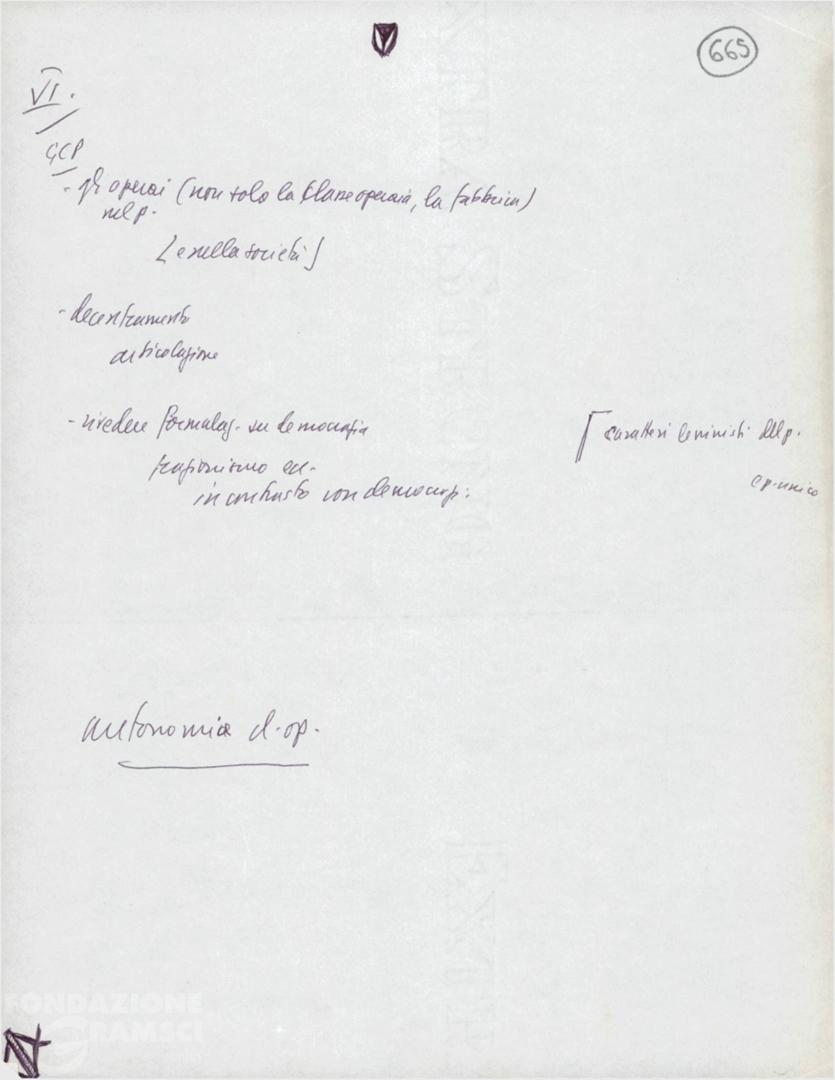 665
VI.
GCP
- gli operai (non solo la classe operaia, la fabbrica)
nel p.
[e nella società]
- decentramento
articolazione
- rivedere formulaz. su democrazia
frazionismo ecc.
in contrasto con democraz.
[ caratteri leninisti del p.
e p. unico
autonomia cl. op.
FONDAZIONE
GRAMSCI